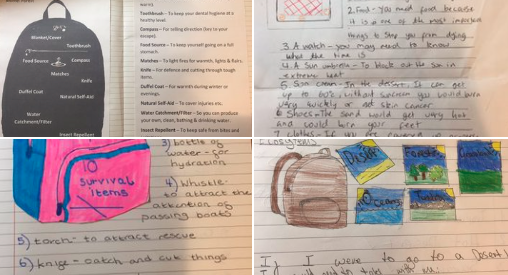 Blanket/Cover
Toothbrush
Food Source
Compass
Matches
Knife
Duffel Coat
Natural Self-Aid
Water
Catchment/Filter
Insect Repellent
Toothbrush – To keep your dental hygiene at a
healthy level.
Compass – For telling direction (key to your
escape).
Food Source – To keep yourself going on a full
stomach.
Matches – To light fires for warmth, lights & flairs.
Knife – For defence and cutting through tough
items.
Duffel Coat – For warmth during winter or
evenings.
Natural Self-Aid – To cover injuries etc.
Water Catchment/Filter – So you can produce
your own clean, bathing & drinking water.
Insect Repellent – To keep safe from bites and
2. Food - You need food because
it is one of the most important
things to stop you from dying
3. A watch - you may need to know
what the time is
4. A Sun umbrella - To block out the sun in
extreme heat
5. Sun cream - In the desert it can get
up to 60°c without suncream you would burn
very quickly or get skin cancer
6. Shoes - The sand would get very hot
and could burn your feet
7. Clothes - If you are
10
survival
items
3) bottle of
water - for
hydration
4) Whistle -
to attract the
attention of
passing boats
5) torch - to attract rescue
6) knife - catch and cut things
Ecosystems
Desert
Forest
Grassland
Ocean
Tundra
If I were to go to a Desert I